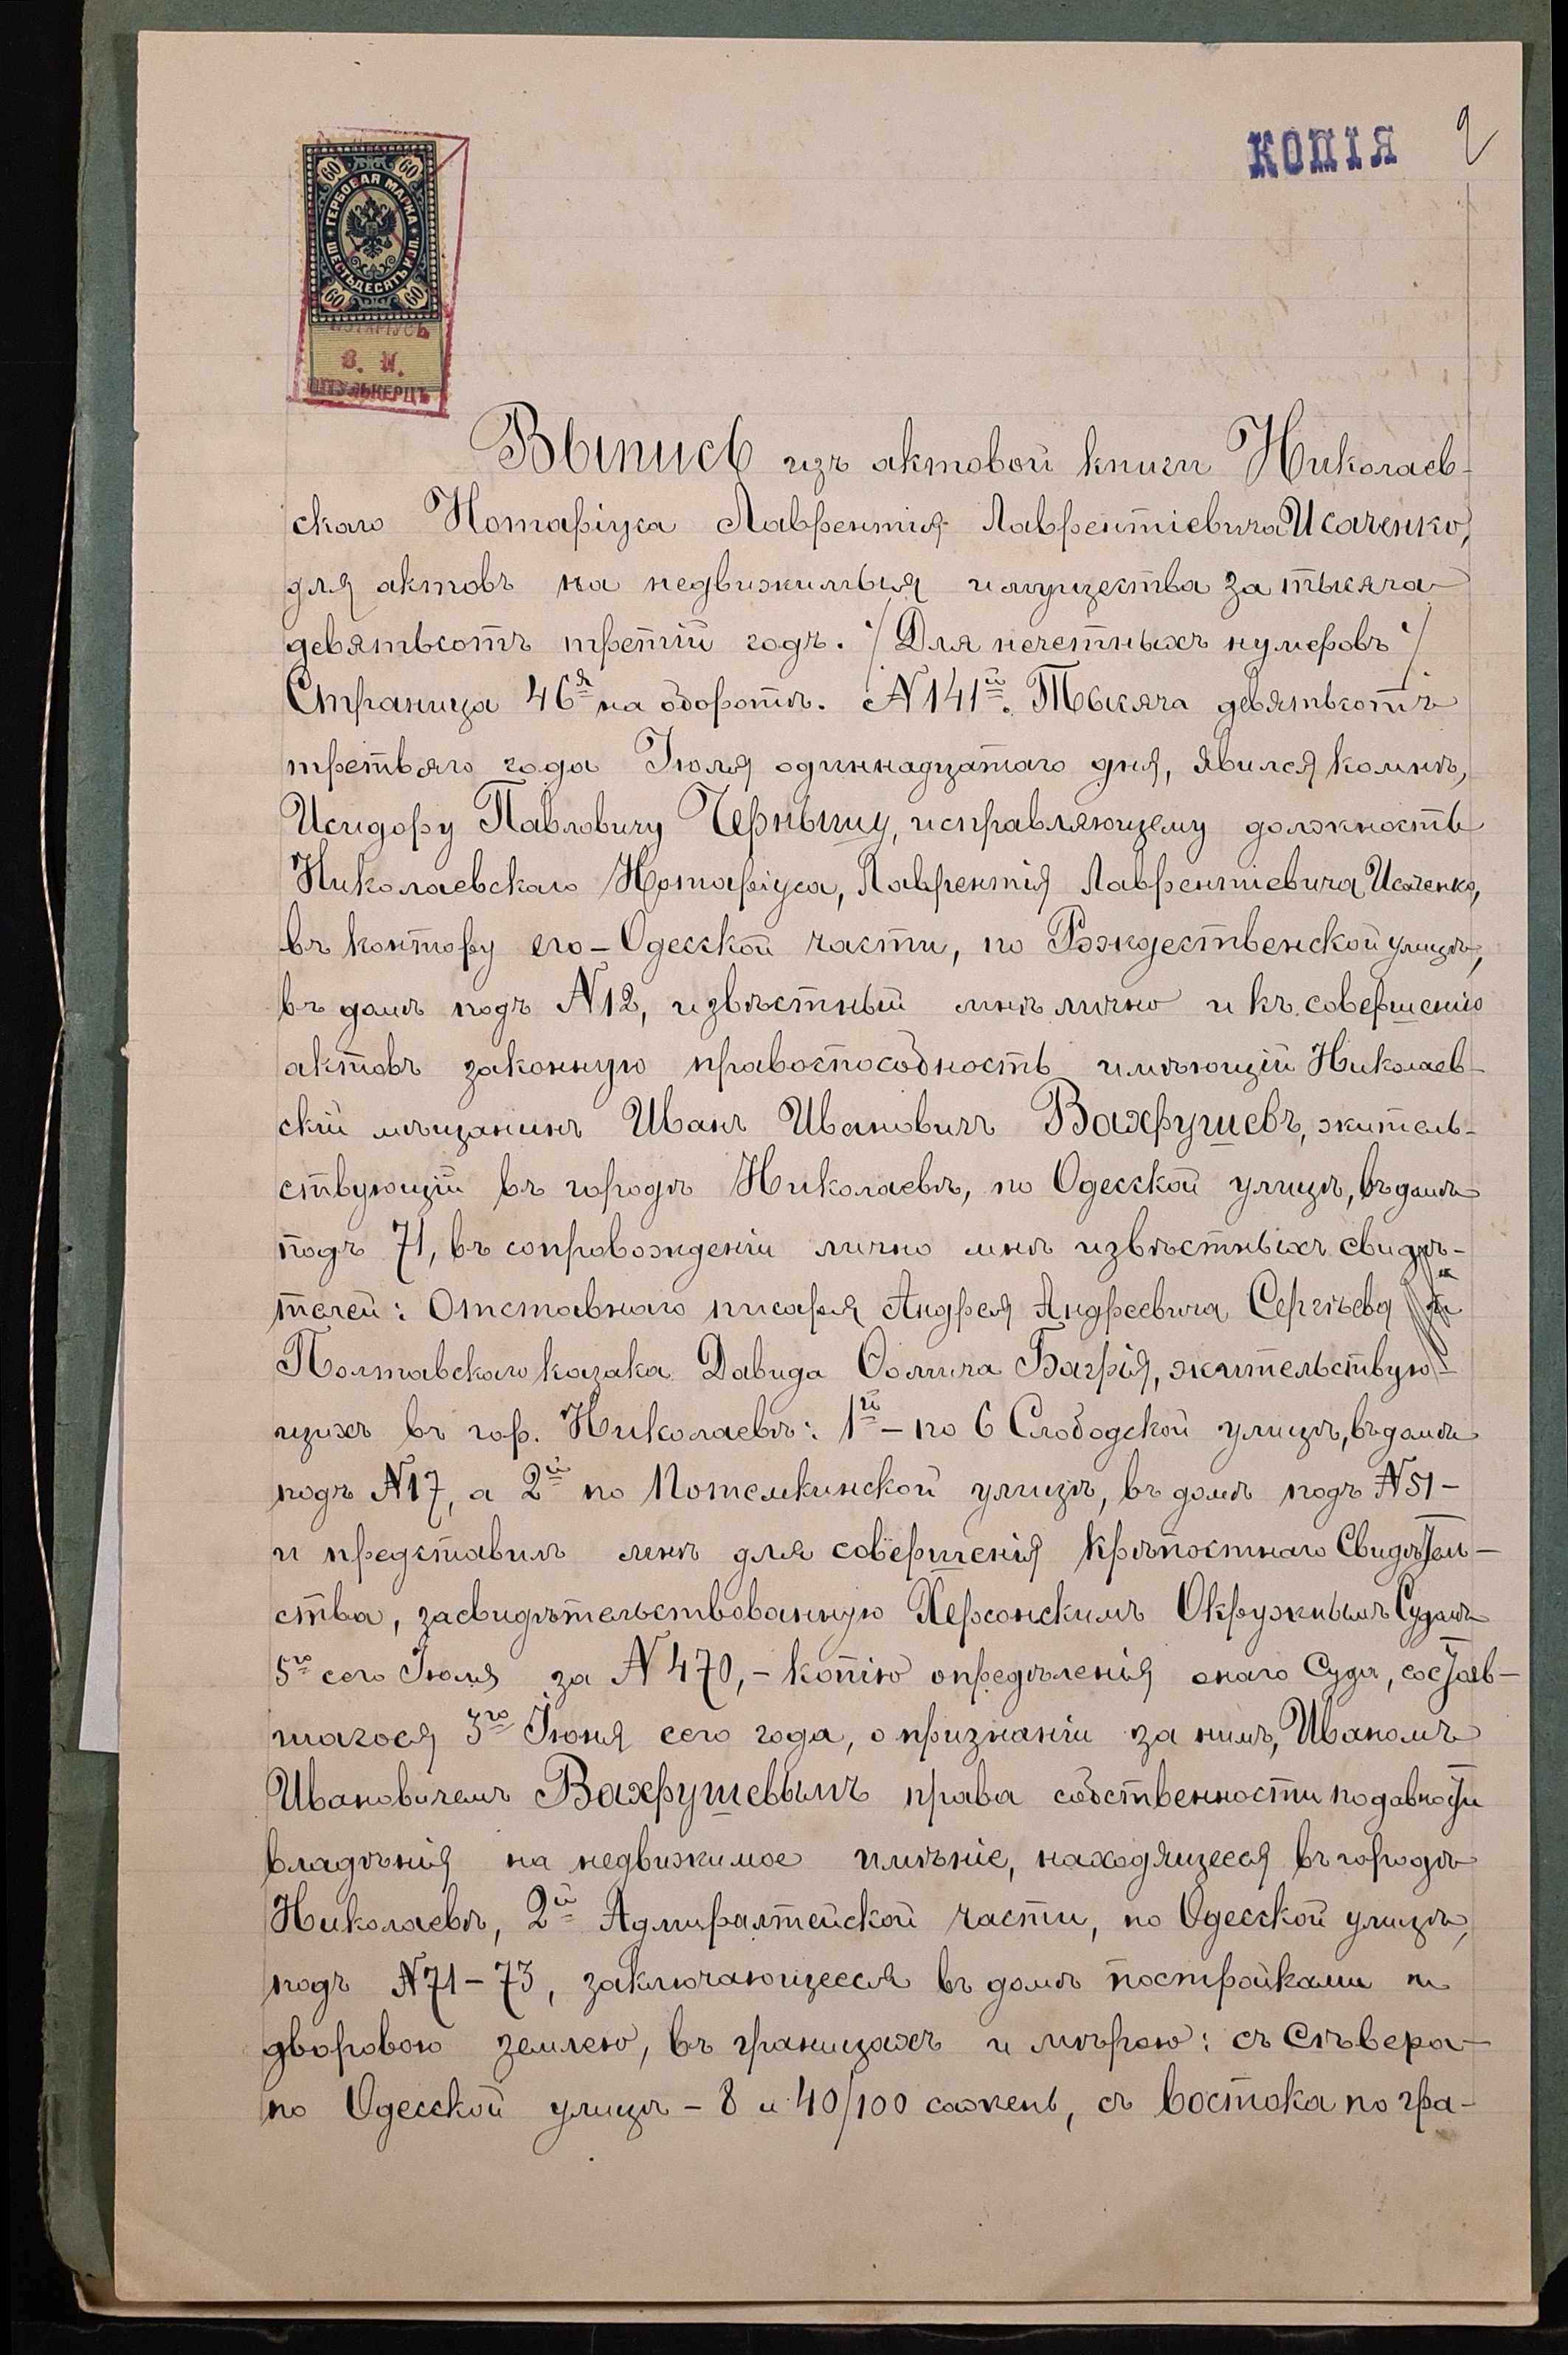 КОПІЯ
2
60 60
ГЕРБОВАЯ МАРКА
ШЕСТЬДЕСЯТЪ КОП.
60 60
НОТАРІУСЪ
В. И.
Выпись изъ актовой книги Николаев-
скаго Нотаріуса Лаврентія Лаврентіевича Исаченко,
для актовъ на недвижимыя имущества за тысяча
девятьсотъ третій годъ. /Для нечетныхъ нумеровъ/
Страница 46я на оборотѣ. №141й. Тысяча девятьсотъ
третьяго года Іюля одиннадцатаго дня, явился ко мнѣ,
Исидору Павловичу Чернышу, исправляющему должность
Николаевскаго Нотаріуса, Лаврентія Лаврентіевича Исаченко,
въ контору его-Одесской части, по Рождественской улицѣ,
въ домѣ подъ №12, извѣстный мнѣ лично и къ совершенію
актовъ законную правоспособность имѣющій Николаев-
скій мѣщанинъ Иванъ Ивановичъ Вахрушевъ, житель-
ствующій въ городѣ Николаевѣ, по Одесской улицѣ, въ домѣ
подъ 71, въ сопровожденіи лично мнѣ извѣстныхъ свидѣ-
телей: Отставного писаря Андрея Андреевича Сергѣева и
Полтавскаго казака Давида Ѳомича Багрія, жительствую-
щихъ въ гор. Николаевѣ: 1й - по 6 Слободской улицѣ, въ домѣ
подъ №17, а 2й по Потемкинской улицѣ, въ домѣ подъ №51-
и представилъ мнѣ для совершенія Крѣпостнаго Свидѣтель-
ства, засвидѣтельствованную Херсонскимъ Окружнымъ Судомъ
5го сего Іюля за №470,- копію опредѣленія онаго Суда, состояв-
шагося 3го Іюня сего года, о признаніи за нимъ, Иваномъ
Ивановичемъ Вахрушевымъ права собственности по давности
владѣнія на недвижимое имѣніе, находящееся въ городѣ
Николаевѣ, 2й Адмиралтейской части, по Одесской улицѣ,
подъ №71-73, заключающееся въ домѣ постройками и
дворовою землею, въ границахъ и мѣрою: съ Сѣвера-
по Одесской улицѣ - 8 и 40/100 сажень, съ востока по гра-